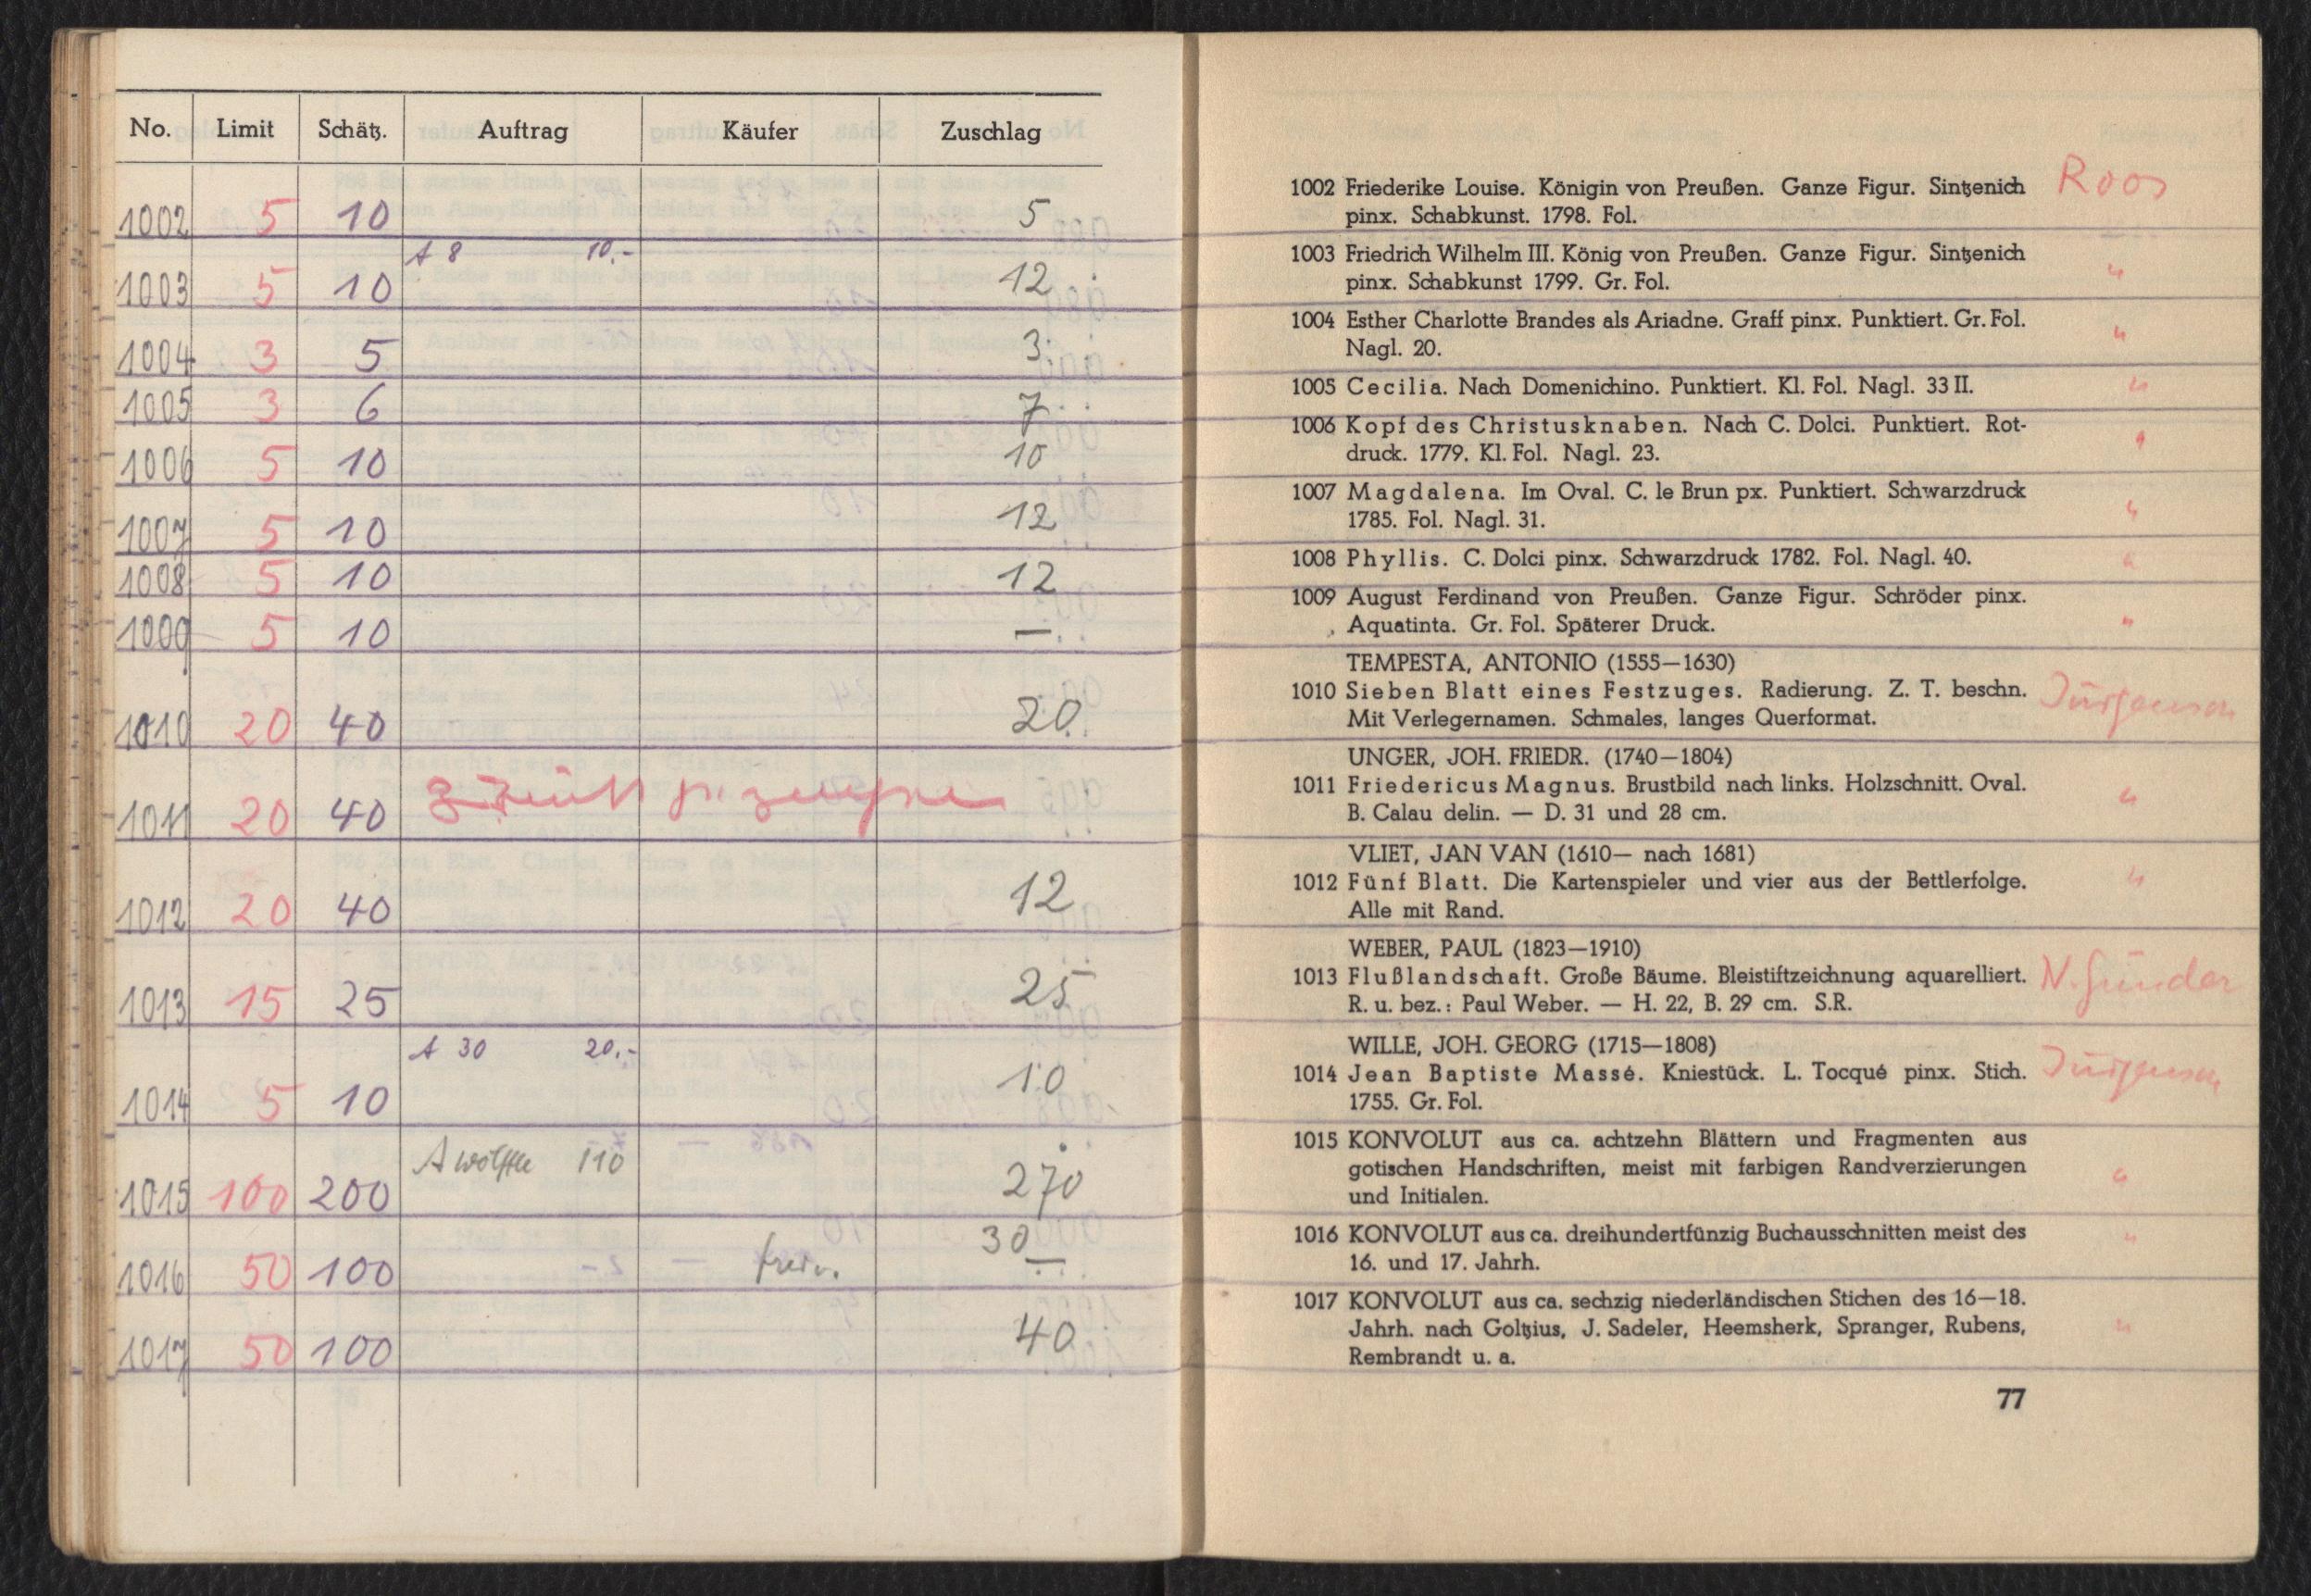 No. Limit Schätz. Auftrag Käufer Zuschlag
1002 5 10 5
A 8 10.-
1003 5 10 12
1004 3 5 3
1005 3 6 7
1006 5 10 10
1007 5 10 12
1008 5 10 12
1009 5 10 —
1010 20 40 20
1011 20 40
1012 20 40 12
1013 15 25 25
A 30 20.-
1014 5 10 10
A 110
1015 100 200 270
1016 50 100 30 —
1017 50 100 40
1002 Friederike Louise. Königin von Preußen. Ganze Figur. Sintzenich Roos
pinx. Schabkunst. 1798. Fol.
1003 Friedrich Wilhelm III. König von Preußen. Ganze Figur. Sintzenich
pinx. Schabkunst 1799. Gr. Fol. "
1004 Esther Charlotte Brandes als Ariadne. Graff pinx. Punktiert. Gr. Fol.
Nagl. 20. "
1005 Cecilia. Nach Domenichino. Punktiert. Kl. Fol. Nagl. 33 II. "
1006 Kopf des Christusknaben. Nach C. Dolci. Punktiert. Rot-
druck. 1779. Kl. Fol. Nagl. 23. "
1007 Magdalena. Im Oval. C. le Brun px. Punktiert. Schwarzdruck
1785. Fol. Nagl. 31. "
1008 Phyllis. C. Dolci pinx. Schwarzdruck 1782. Fol. Nagl. 40. "
1009 August Ferdinand von Preußen. Ganze Figur. Schröder pinx.
Aquatinta. Gr. Fol. Späterer Druck. "
TEMPESTA, ANTONIO (1555—1630)
1010 Sieben Blatt eines Festzuges. Radierung. Z. T. beschn.
Mit Verlegernamen. Schmales, langes Querformat.
UNGER, JOH. FRIEDR. (1740—1804)
1011 Friedericus Magnus. Brustbild nach links. Holzschnitt. Oval. "
B. Calau delin. — D. 31 und 28 cm.
VLIET, JAN VAN (1610— nach 1681)
1012 Fünf Blatt. Die Kartenspieler und vier aus der Bettlerfolge. "
Alle mit Rand.
WEBER, PAUL (1823—1910)
1013 Flußlandschaft. Große Bäume. Bleistiftzeichnung aquarelliert.
R. u. bez.: Paul Weber. — H. 22, B. 29 cm. S.R.
WILLE, JOH. GEORG (1715—1808)
1014 Jean Baptiste Massé. Kniestück. L. Tocqué pinx. Stich.
1755. Gr. Fol.
1015 KONVOLUT aus ca. achtzehn Blättern und Fragmenten aus
gotischen Handschriften, meist mit farbigen Randverzierungen "
und Initialen.
1016 KONVOLUT aus ca. dreihundertfünzig Buchausschnitten meist des "
16. und 17. Jahrh.
1017 KONVOLUT aus ca. sechzig niederländischen Stichen des 16—18.
Jahrh. nach Goltzius, J. Sadeler, Heemsherk, Spranger, Rubens, "
Rembrandt u. a.
77